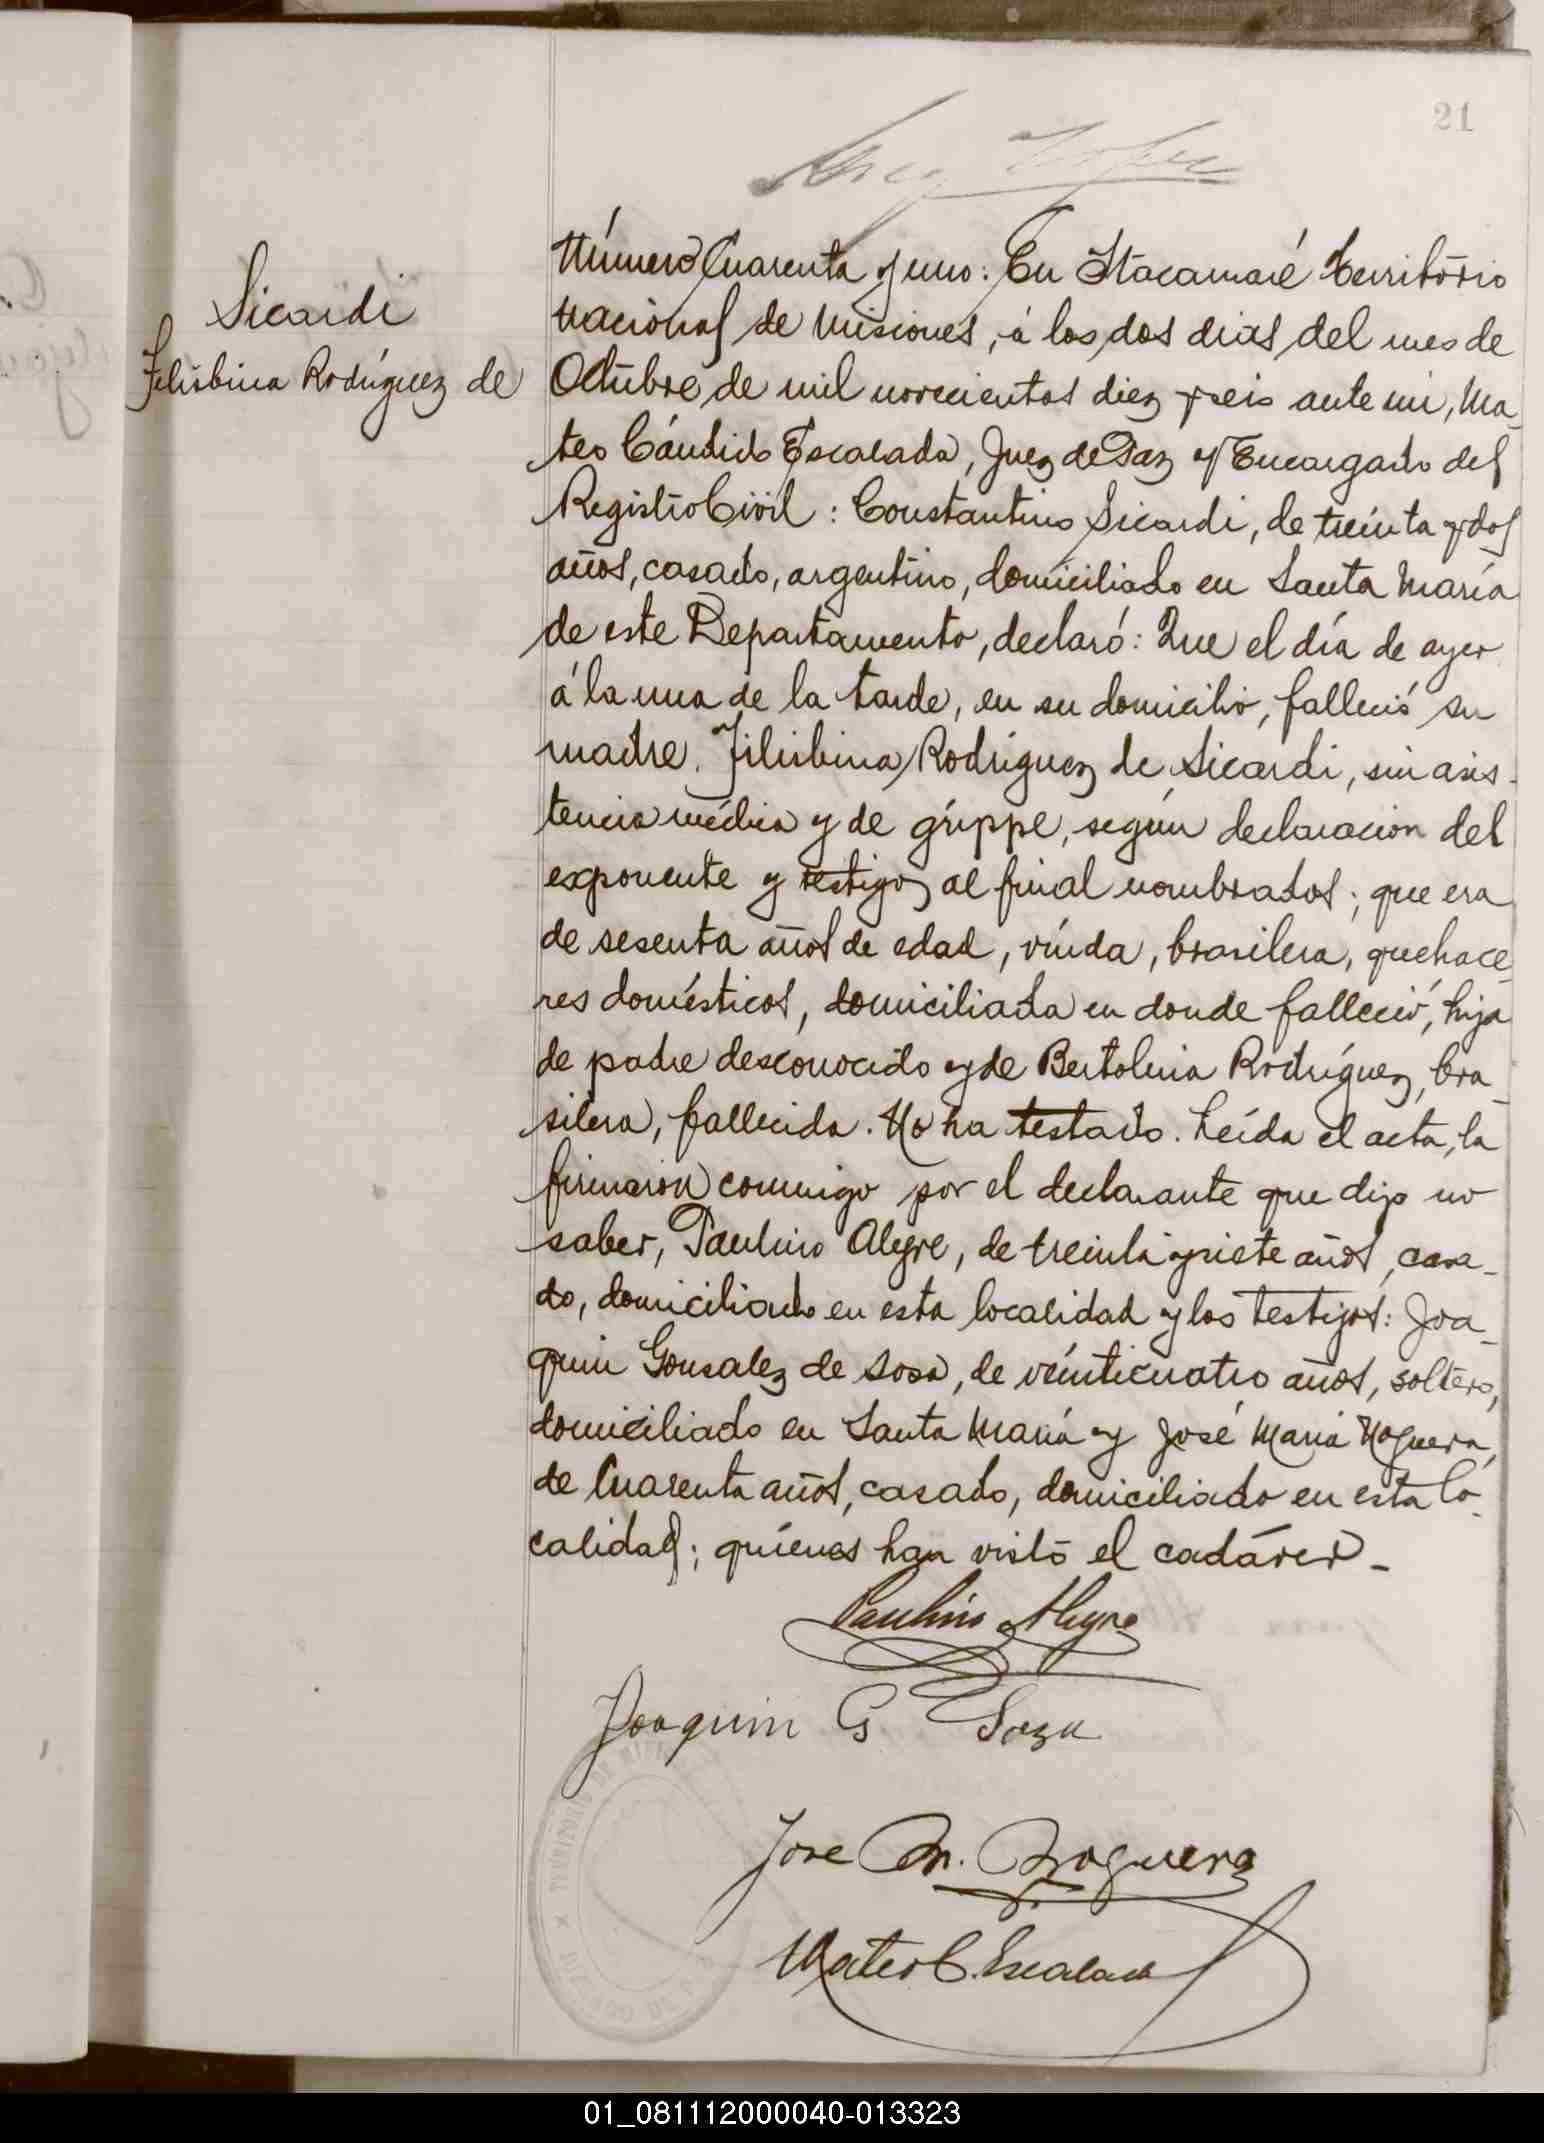 21
Sicardi
Filisbina Rodríguez de
Número Cuarenta y uno: En Itacaruaré Territorio
nacional de Misiones, á los dos dias del mes de
Octubre de mil novecientos diez y seis ante mi, Ma-
teo Cándido Escalada, Juez de Paz y Encargado del
Registro Civil: Constantino Sicardi, de treinta y dos
años, casado, argentino, domiciliado en Santa María
de este Departamento, declaró: Que el día de ayer
á la una de la tarde, en su domicilio, falleció su
madre Filisbina Rodríguez de Sicardi, sin asis-
tencia médica y de grippe, según declaración del
exponente y testigos al final nombrados; que era
de sesenta años de edad, viuda, brasilera, quehace-
res domésticos, domiciliada en donde falleció, hija
de padre desconocido y de Bertolina Rodríguez, bra-
silera, fallecida. No ha testado. Leída el acta, la
firmaron conmigo por el declarante que dijo no
saber, Paulino Alegre, de treinta y siete años, casa-
do, domiciliado en esta localidad y los testigos: Joa-
quin Gonzalez de Sosa, de veinticuatro años, soltero,
domiciliado en Santa María y José María Noguera,
de Cuarenta años, casado, domiciliado en esta lo-
calidad; quiénes han visto el cadáver-
Paulino Alegre
Joaquin G Sosa
Jose M. Noguera
Mateo C. Escalada
TERRITORIO DE MISIONES
JUZGADO DE PAZ
01_081112000040-013323